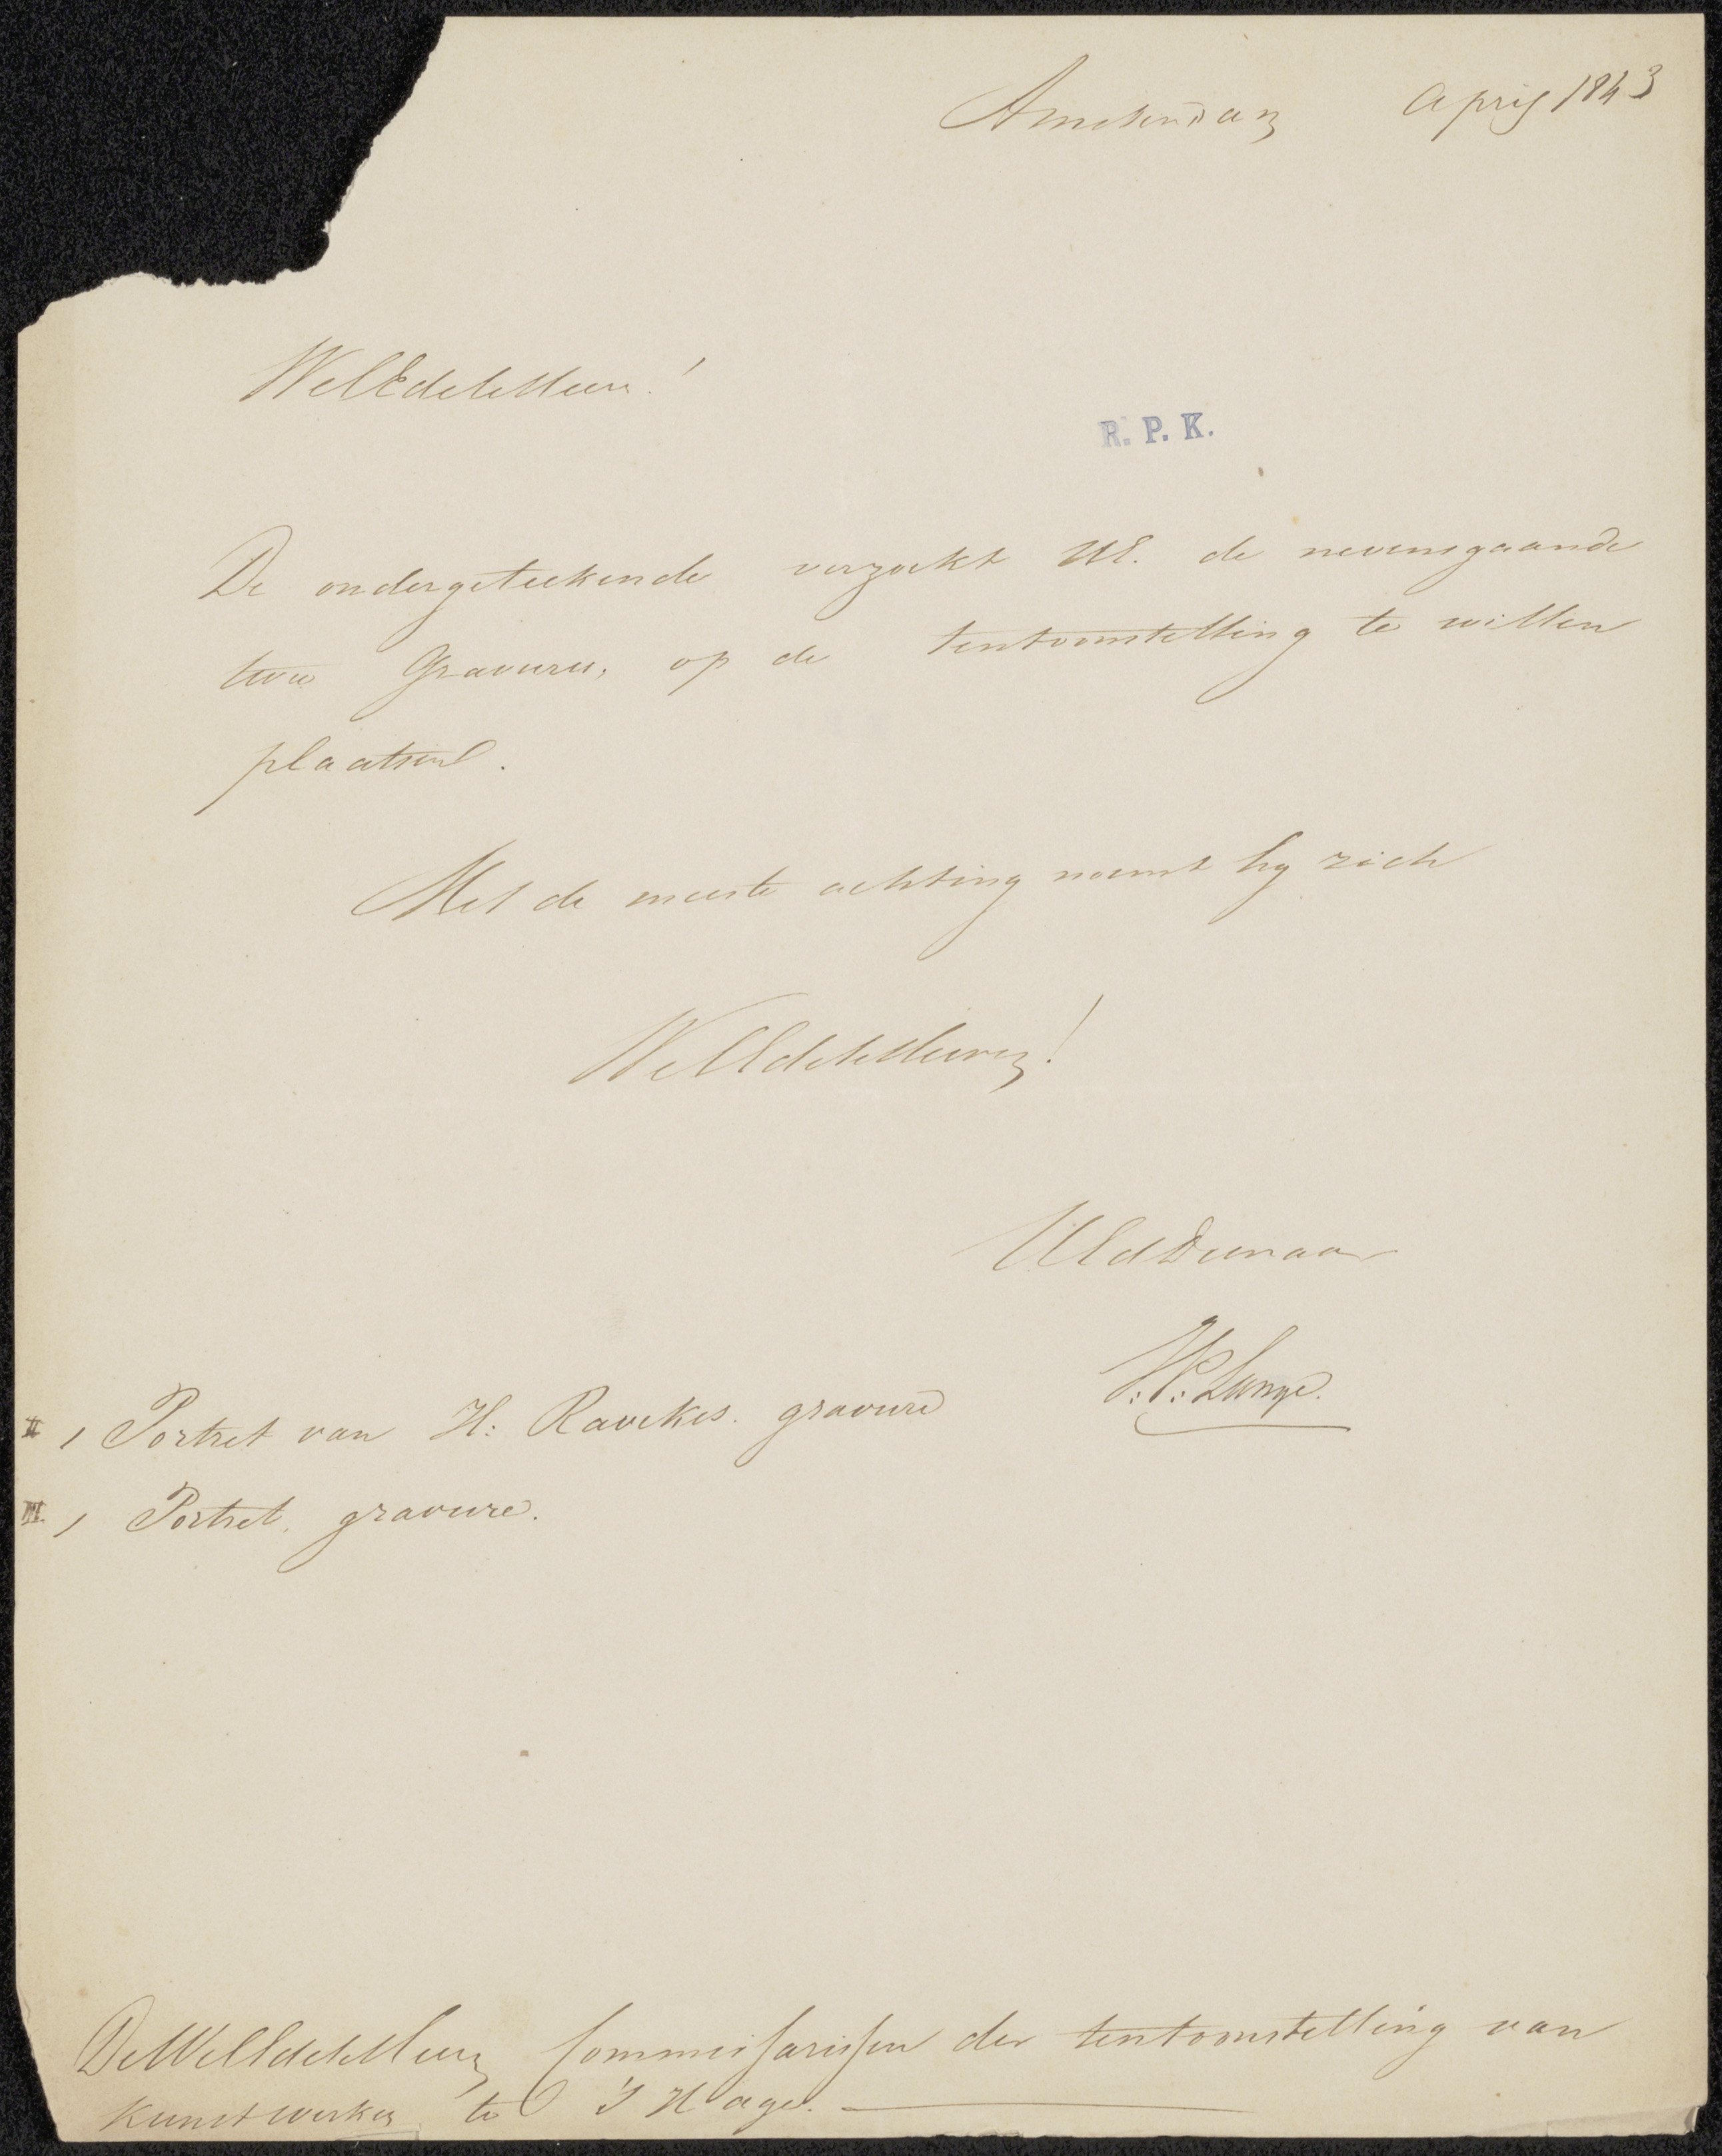 Amsterdam April 1843
WelEdeleHeer!
R. P. K.
De ondergeteekende verzoekt UE. de nevensgaande
twee Gravures, op de tentoonstelling te willen
plaatsen.
Met de meeste achting noemt hy zich
WelEdeleHeeren!
UEd Dienaar
Lange.
II 1 Portret van H: Ravekes. gravure
III. 1 Portret. gravure.
De WelEdeleHeeren Commissarissen der tentoonstelling van
Kunstwerken te 'S Hage.